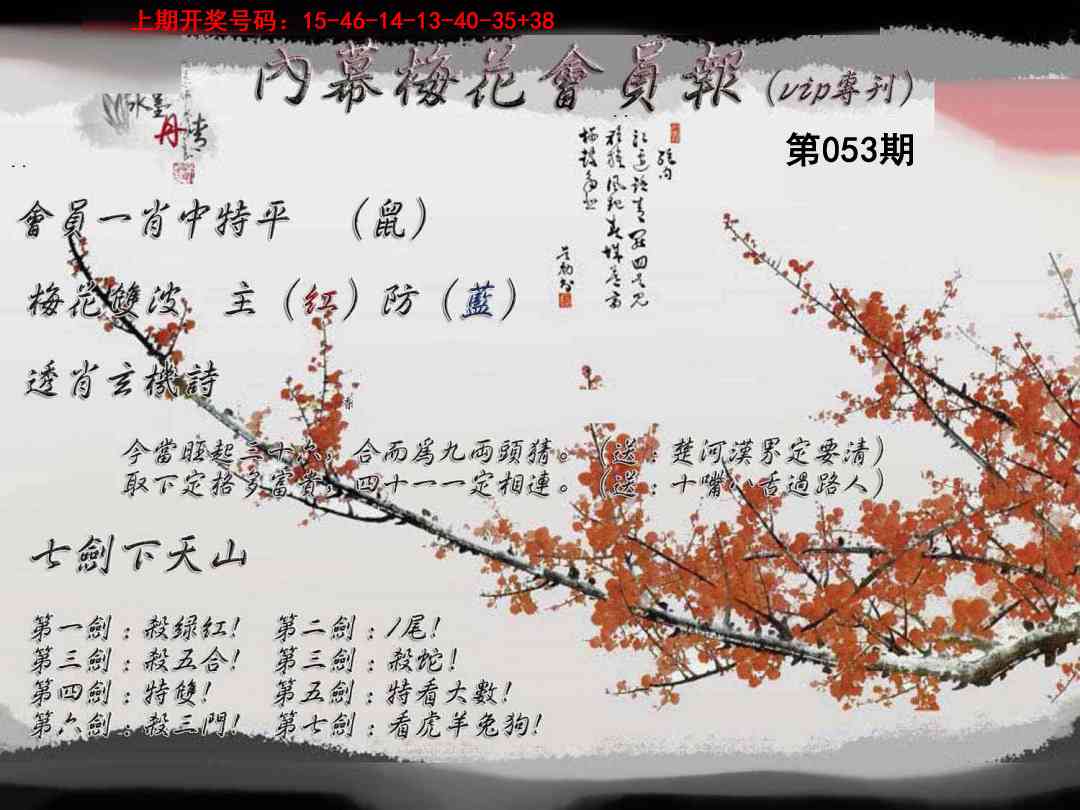 上期开奖号码：15-46-14-13-40-35+38
內幕梅花會員報（vip專刊）
水墨
丹青
第053期
會員一肖中特平 （鼠）
梅花雙波 主（红）防（藍）
透肖玄機詩
今當旺起三十次，合而為九兩頭猜。（送：楚河漢界定要清）
取下定格多富貴，四十一一定相連。（送：十嘴八舌過路人）
七劍下天山
第一劍：殺绿红！ 第二劍：1尾！
第三劍：殺五合！ 第三劍：殺蛇！
第四劍：特雙！ 第五劍：特看大數！
第六劍：殺三門！ 第七劍：看虎羊兔狗！